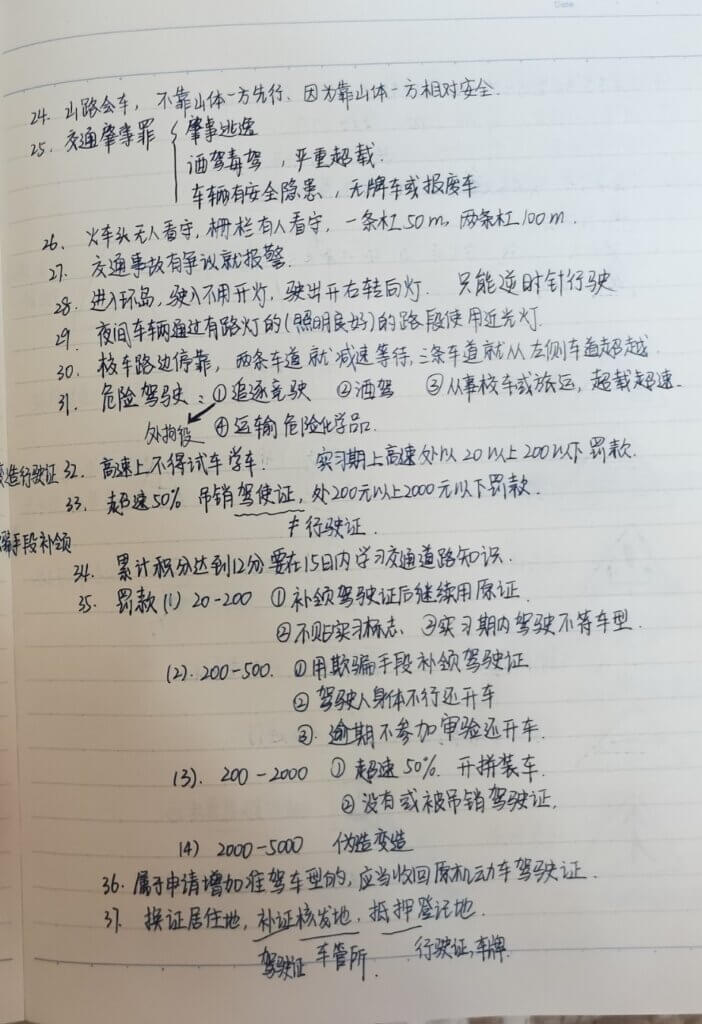 Date
24. 山路会车，不靠山体一方先行，因为靠山体一方相对安全.
25. 交通肇事罪 { 肇事逃逸
酒驾毒驾，严重超载.
车辆有安全隐患，无牌车或报废车
26. 火车头无人看守，栅栏有人看守，一条杠50m，两条杠100m.
27. 交通事故有争议就报警.
28. 进入环岛，驶入不用开灯，驶出开右转向灯. 只能逆时针行驶
29. 夜间车辆通过有路灯的(照明良好)的路段使用近光灯.
30. 校车路边停靠，两条车道就减速等待，三条车道就从左侧车道超越.
31. 危险驾驶：①追逐竞驶 ②酒驾 ③从事校车或旅运，超载超速.
处拘役 ④运输危险化学品.
造行驶证 32. 高速上不得试车学车. 实习期上高速处以20以上200以下罚款.
33. 超速50% 吊销驾使证，处200元以上2000元以下罚款.
≠行驶证.
手段补领
34. 累计积分达到12分要在15日内学习交通道路知识.
35. 罚款 (1) 20-200 ①补领驾驶证后继续用原证.
②不贴实习标志. ③实习期内驾驶不符车型.
(2). 200-500. ①用欺骗手段补领驾驶证
②驾驶人身体不行还开车
③. 逾期不参加审验还开车.
(3). 200-2000 ①超速50%. 开拼装车.
②没有或被吊销驾驶证.
(4) 2000-5000 伪造变造
36. 属于申请增加准驾车型的，应当收回原机动车驾驶证.
37. 换证居住地，补证核发地，抵押登记地.
驾驶证 车管所. 行驶证，车牌.